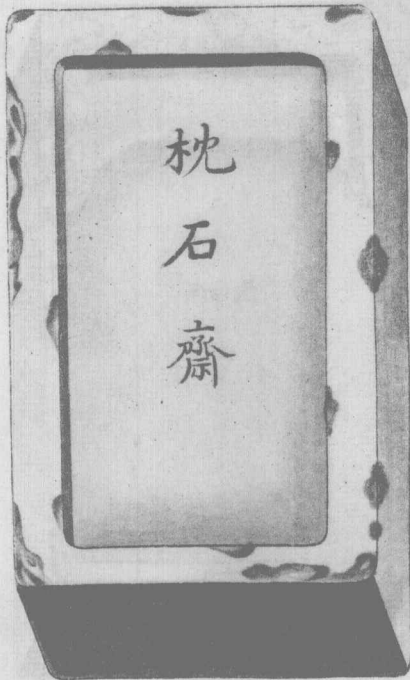 枕石齋